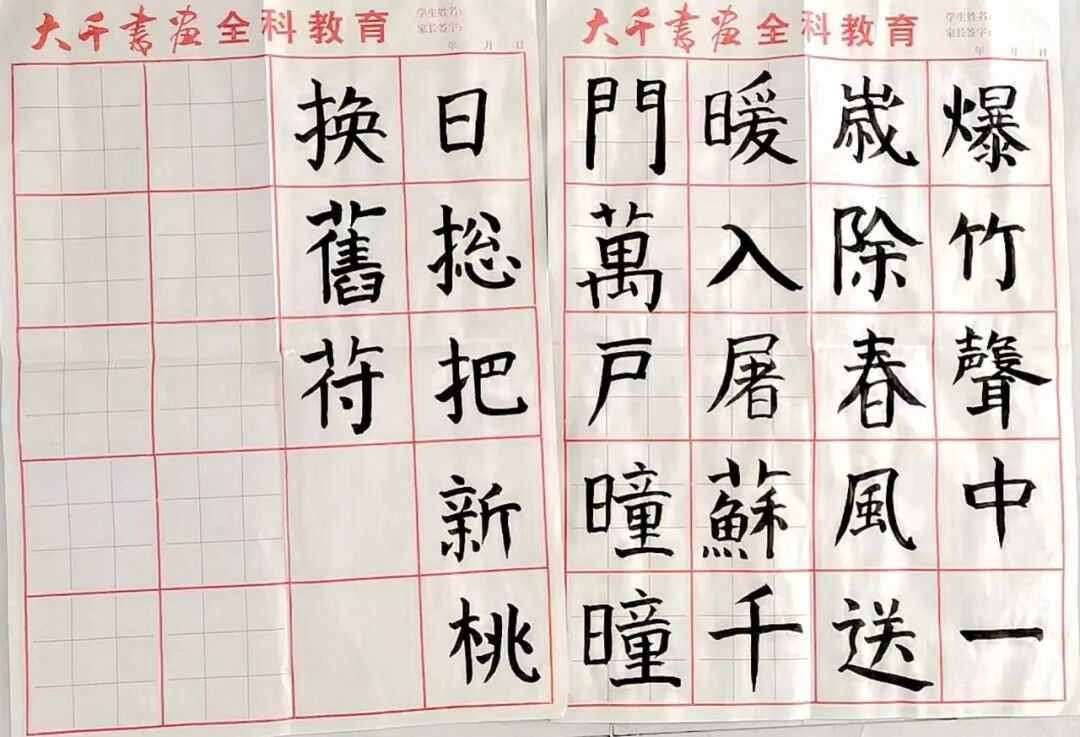 大千書畫全科教育
学生姓名:
家长签字:
年 月 日
爆竹聲中一
嵗除春風送
暖入屠蘇千
門萬戸曈曈
大千書畫全科教育
学生姓名:
家长签字:
年 月 日
日捴把新桃
换舊苻